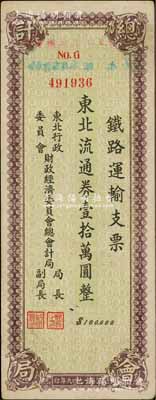 總計
NO. G
491936
鐵路運輸支票
東北流通券壹拾萬圓整
$100000
東北行政委員會
財政經濟委員會總會計局
局長
副局長
會局